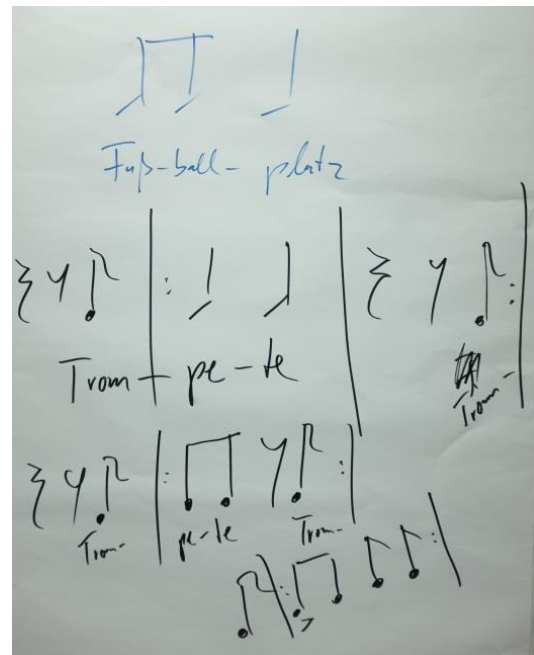 Fuß-ball-platz
Trom-pe-te
Trom-
Trom- pe-te Trom-